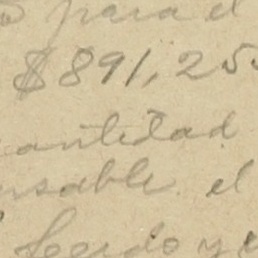 para el
$891,25
cantidad
nsable el
Cerdo y